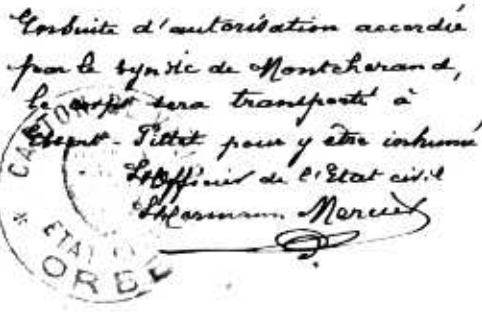 Ensuite d'autorisation accordée
par le syndic de Montcherand,
le corps sera transporté à
Pittet pour y être inhumé
L'Officier de l'Etat civil
Mercier
CANTON DE
* ETAT
ORBE